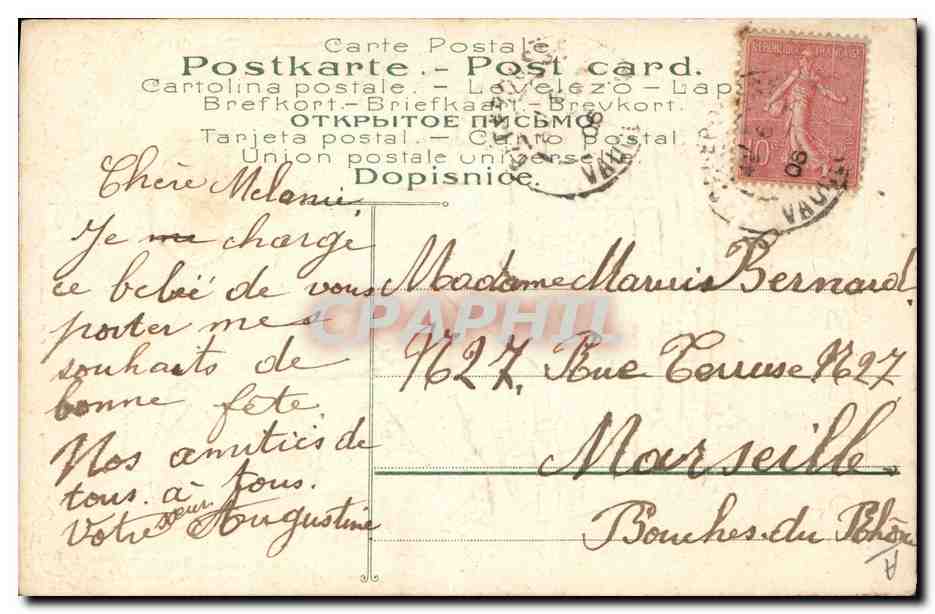 Carte Postale
Postkarte. - Post card.
Cartolina postale. - Levelező - Lap
Brefkort. - Briefkaart. - Brevkort.
ОТКРЫТОЕ ПИСЬМО
Tarjeta postal. - Carto postal
Union postale universelle
Dopisnice.
REPUBLIQUE FRANÇAISE
10c
06
VAUCL
06
VAUCL
Chère Melanie
Je me charge
ce bebé de vous
porter mes
souhaits de
bonne fête
Nos amitiés de
tous. à tous.
Votre soeur Augustine
Madame Marius Bernard
N27, Rue Terruse N27
Marseille
Bouches.du Rhône
A
CPAPHIL